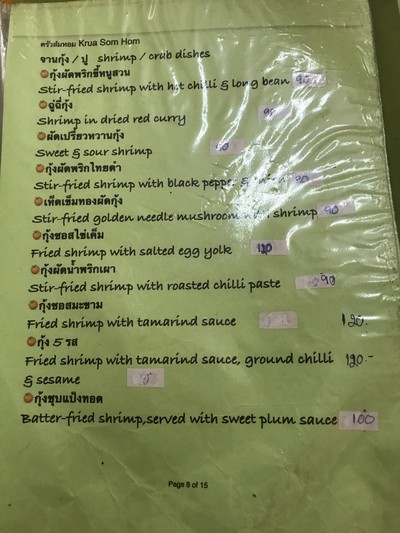 ครัวส้มหอม Krua Som Hom
จานกุ้ง / ปู shrimp / crab dishes
กุ้งผัดพริกขี้หนูสวน
Stir-fried shrimp with hot chilli & long bean 90
ฉู่ฉี่กุ้ง
Shrimp in dried red curry 90
ผัดเปรี้ยวหวานกุ้ง
Sweet & sour shrimp 90
กุ้งผัดพริกไทยดำ
Stir-fried shrimp with black pepper & 90
เห็ดเข็มทองผัดกุ้ง
Stir-fried golden needle mushroom with shrimp 90
กุ้งซอสไข่เค็ม
Fried shrimp with salted egg yolk 120
กุ้งผัดน้ำพริกเผา
Stir-fried shrimp with roasted chilli paste 90
กุ้งซอสมะขาม
Fried shrimp with tamarind sauce 120.-
กุ้ง 5 รส
Fried shrimp with tamarind sauce, ground chilli 120.-
& sesame
กุ้งชุบแป้งทอด
Batter-fried shrimp,served with sweet plum sauce 100
Page 8 of 15